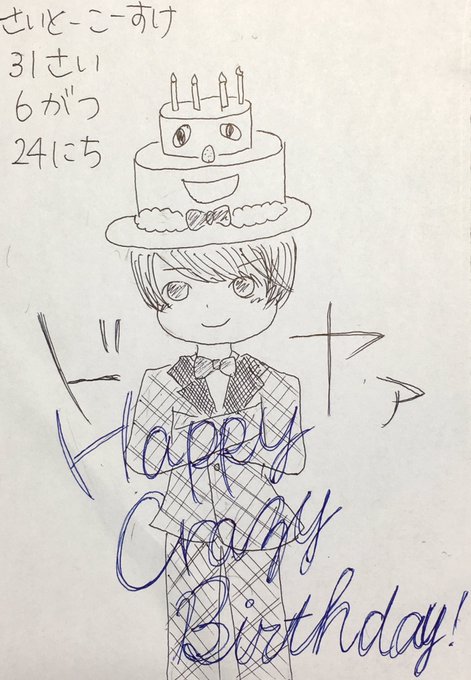 さいとーこーすけ
31さい
6がつ
24にち
ドヤァ
Happy
Crazy
Birthday!